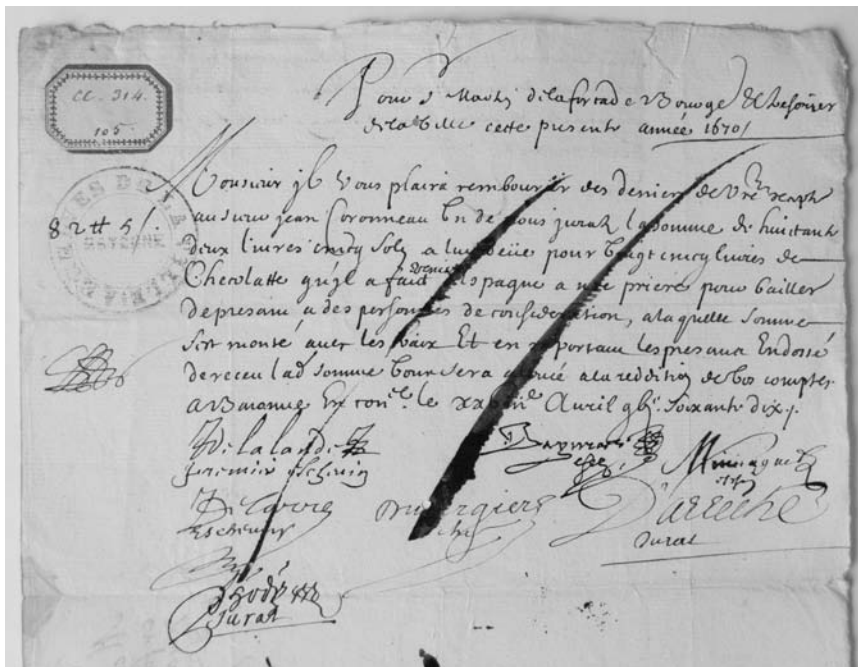 CC. 314.
105
ARCHIVES DE LA VILLE
BAYONNE
Pour Sr de Laforcade Bourgs & thesorier
de la Ville cette presente année 1670
82 tt 5 s
Monsieur jl Vous plaira rembourser des deniers de vre recepte
au sieur jean Coronneau Un de nous juratz la somme de huictante
deux livres cincq solz a luy deüe pour Vingt cincq livres de
Chocolatte qu'jl a fait venir despagne a nre priere pour bailler
de presant a des personnes de consideration, a laquelle somme
sest monté avec les Et en raportant les presantes Endossé
de receu lad somme Vous sera aloüée a la reddition de vos comptes
a Bayonne En conel le Avril soixante dix
Delalande
premier eschevin
esch
Delarre
Eschevin
esch
Darreche
Jurat
Jurat